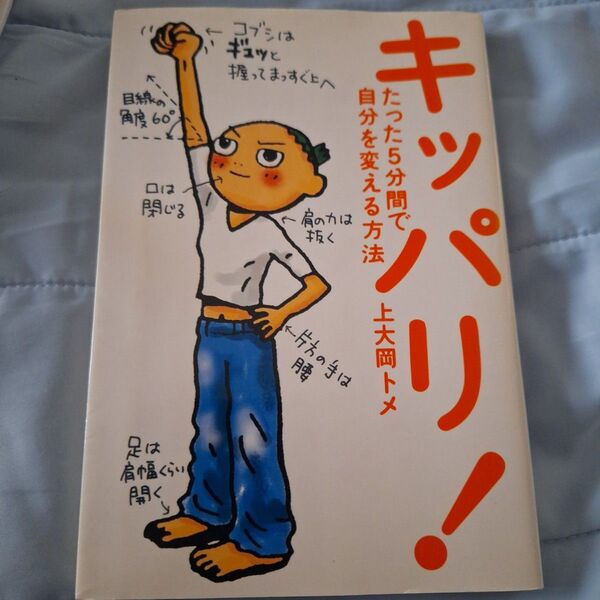 キッパリ!
たった5分間で
自分を変える方法
上大岡トメ
コブシは
ギュッと
握ってまっすぐ上へ
目線の
角度60°
口は
閉じる
肩の力は
抜く
片方の手は
腰
足は
肩幅くらい
開く